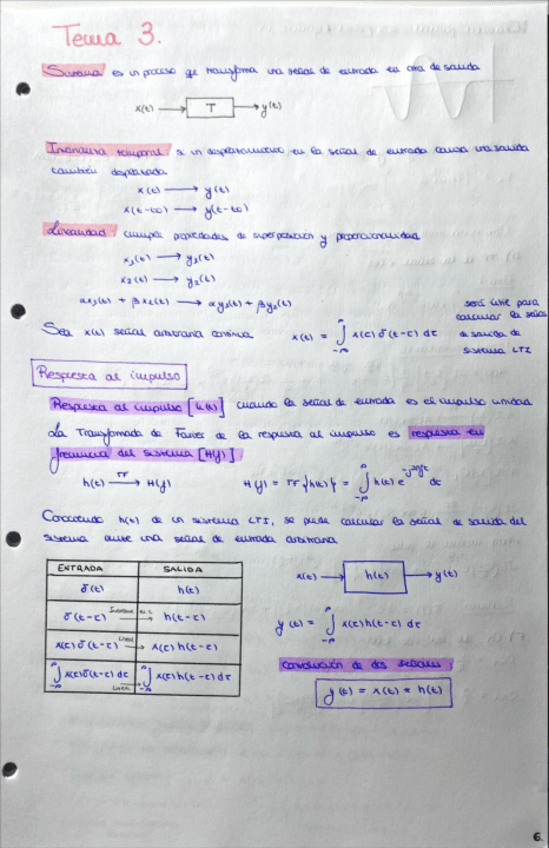 Tema 3.
Sistema es un proceso que transforma una señal de entrada en otra de salida
x(t) → T → y(t)
Invarianza temporal: si un desplazamiento en la señal de entrada causa una salida
también desplazada
x(t) → y(t)
x(t-t0) → y(t-t0)
Linealidad: cumple propiedades de superposición y proporcionalidad
x1(t) → y1(t)
x2(t) → y2(t)
αx1(t) + βx2(t) → αy1(t) + βy2(t)
Sea x(t) señal arbitraria continua x(t) = ∫_{-∞}^{∞} x(τ) δ(t-τ) dτ
será útil para
calcular la señal
de salida de
sistema LTI
Respuesta al impulso
Respuesta al impulso [h(t)] cuando la señal de entrada es el impulso unidad
La Transformada de Fourier de la respuesta al impulso es respuesta en
frecuencia del sistema [H(f)]
h(t) —TF→ H(f) H(f) = TF{h(t)} = ∫_{-∞}^{∞} h(t) e^{-j2πft} dt
Conociendo h(t) de un sistema LTI, se puede calcular la señal de salida del
sistema ante una señal de entrada arbitraria
ENTRADA SALIDA
δ(t) h(t)
δ(t-τ) → h(t-τ)
x(τ) δ(t-τ) —Lineal→ x(τ) h(t-τ)
∫_{-∞}^{∞} x(τ)δ(t-τ) dτ → ∫_{-∞}^{∞} x(τ) h(t-τ) dτ
x(t) → h(t) → y(t)
y(t) = ∫_{-∞}^{∞} x(τ) h(t-τ) dτ
convolución de dos señales:
y(t) = x(t) * h(t)
6.